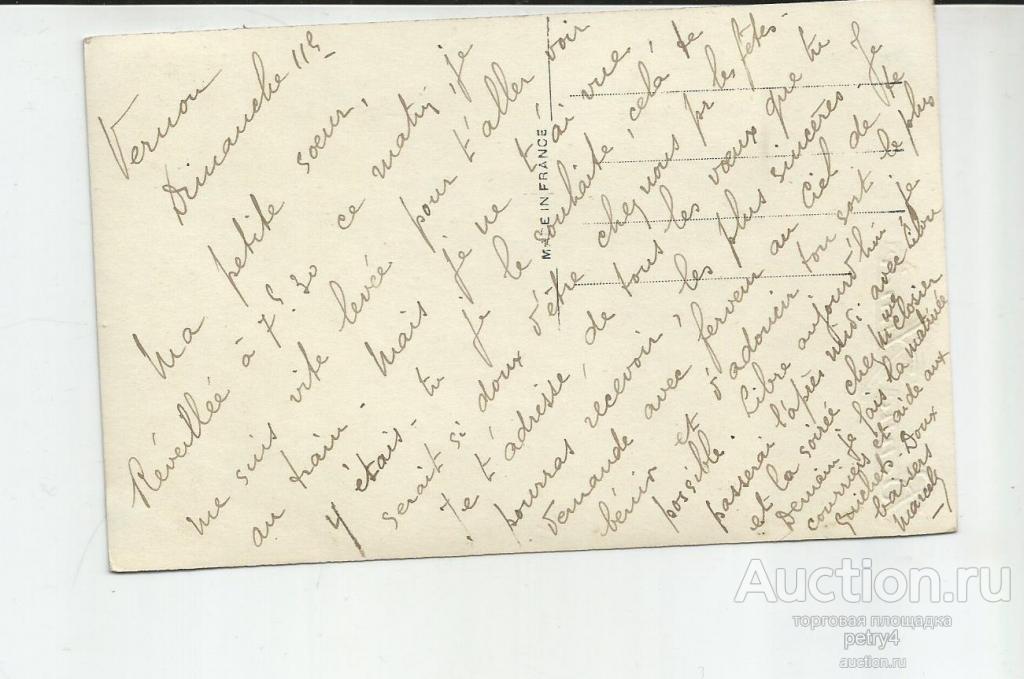 Vernon
Dimanche 11h
Ma petite soeur,
Réveillée à 7h30 ce matin, je
me suis vite levée pour t'aller voir
au train. Mais je ne t'ai vue,
y étais-tu je le souhaite, cela te
serait si doux d'être chez nous pr les fêtes.
Je t'adresse, de tous les voeux que tu
pourras recevoir, les plus sincères. Je
demande avec ferveur au Ciel de te
bénir et d'adoucir ton sort le plus
possible. Libre aujourd'hui je
passerai l'après midi avec
et la soirée chez me Closier
Demain je fais la matinée
courriers et aide aux
guichets. Doux
baisers
Marcelle
MADE IN FRANCE
Auction.ru
торговая площадка
petry4
auction.ru